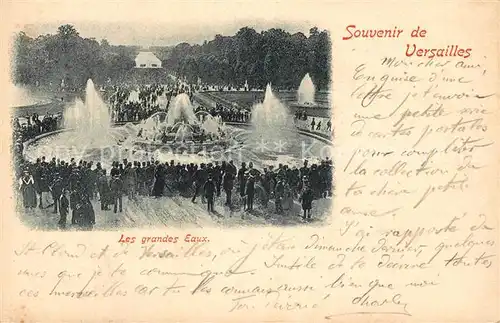 Souvenir de
Versailles
Mon cher ami,
En guise d'une
lettre je t'envoie
une petite série
de cartes postales
pour compléter
la collection de
ta chère petite
J'ai rapporté de
St Cloud et de Versailles, où j'étais dimanche dernier, quelques
unes que je te communique. Inutile de te dire toutes
ces merveilles car tu les connais aussi bien que moi
Ton
Charley
Les grandes Eaux.